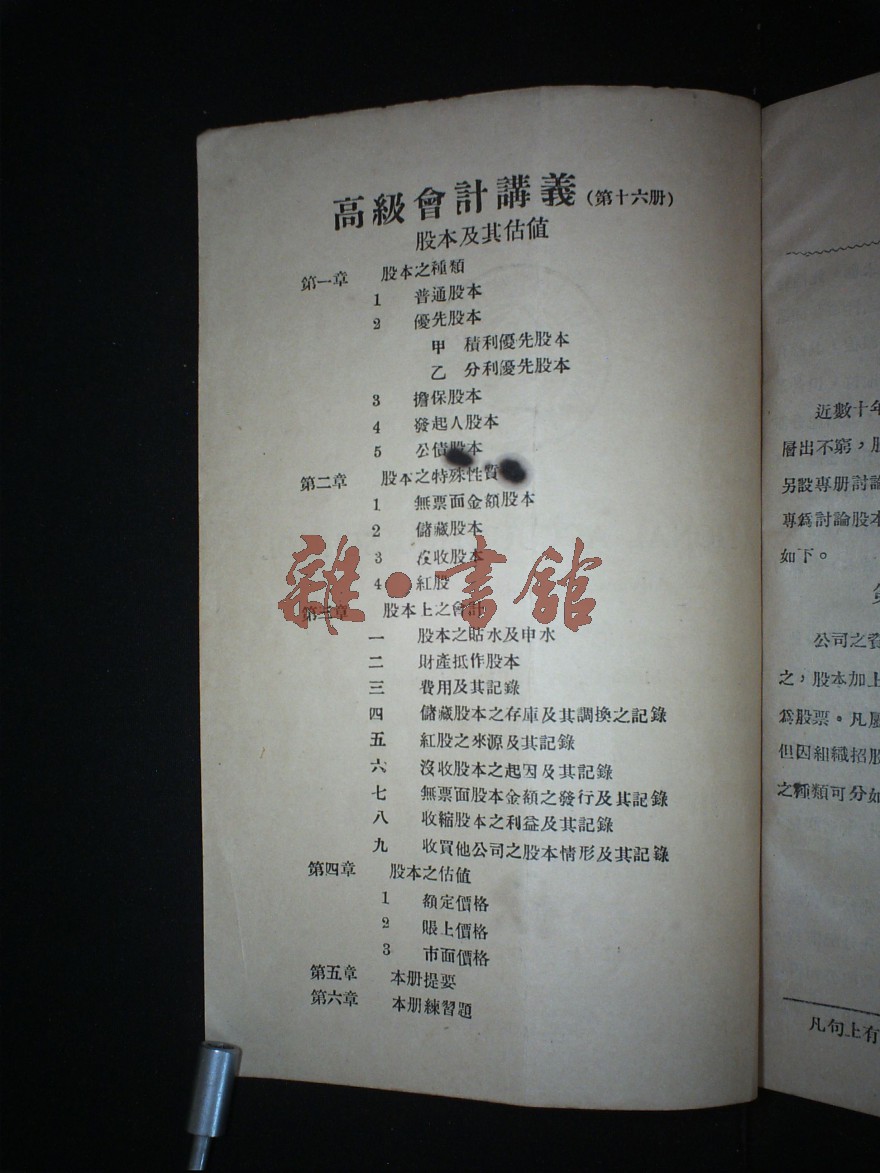 高級會計講義（第十六册）
股本及其估値
第一章 股本之種類
1 普通股本
2 優先股本
甲 積利優先股本
乙 分利優先股本
3 擔保股本
4 發起人股本
5 公債股本
第二章 股本之特殊性質
1 無票面金額股本
2 儲藏股本
3 沒收股本
4 紅股
第三章 股本上之會計
一 股本之貼水及申水
二 財產抵作股本
三 費用及其記錄
四 儲藏股本之存庫及其調換之記錄
五 紅股之來源及其記錄
六 沒收股本之起因及其記錄
七 無票面股本金額之發行及其記錄
八 收縮股本之利益及其記錄
九 收買他公司之股本情形及其記錄
第四章 股本之估値
1 額定價格
2 賬上價格
3 市面價格
第五章 本册提要
第六章 本册練習題
雜·書館
近數十年
層出不窮，
另設專册討論
專爲討論股本
如下。
公司之資
之，股本加上
爲股票。凡屬
但因組織招股
之種類可分如
凡句上有